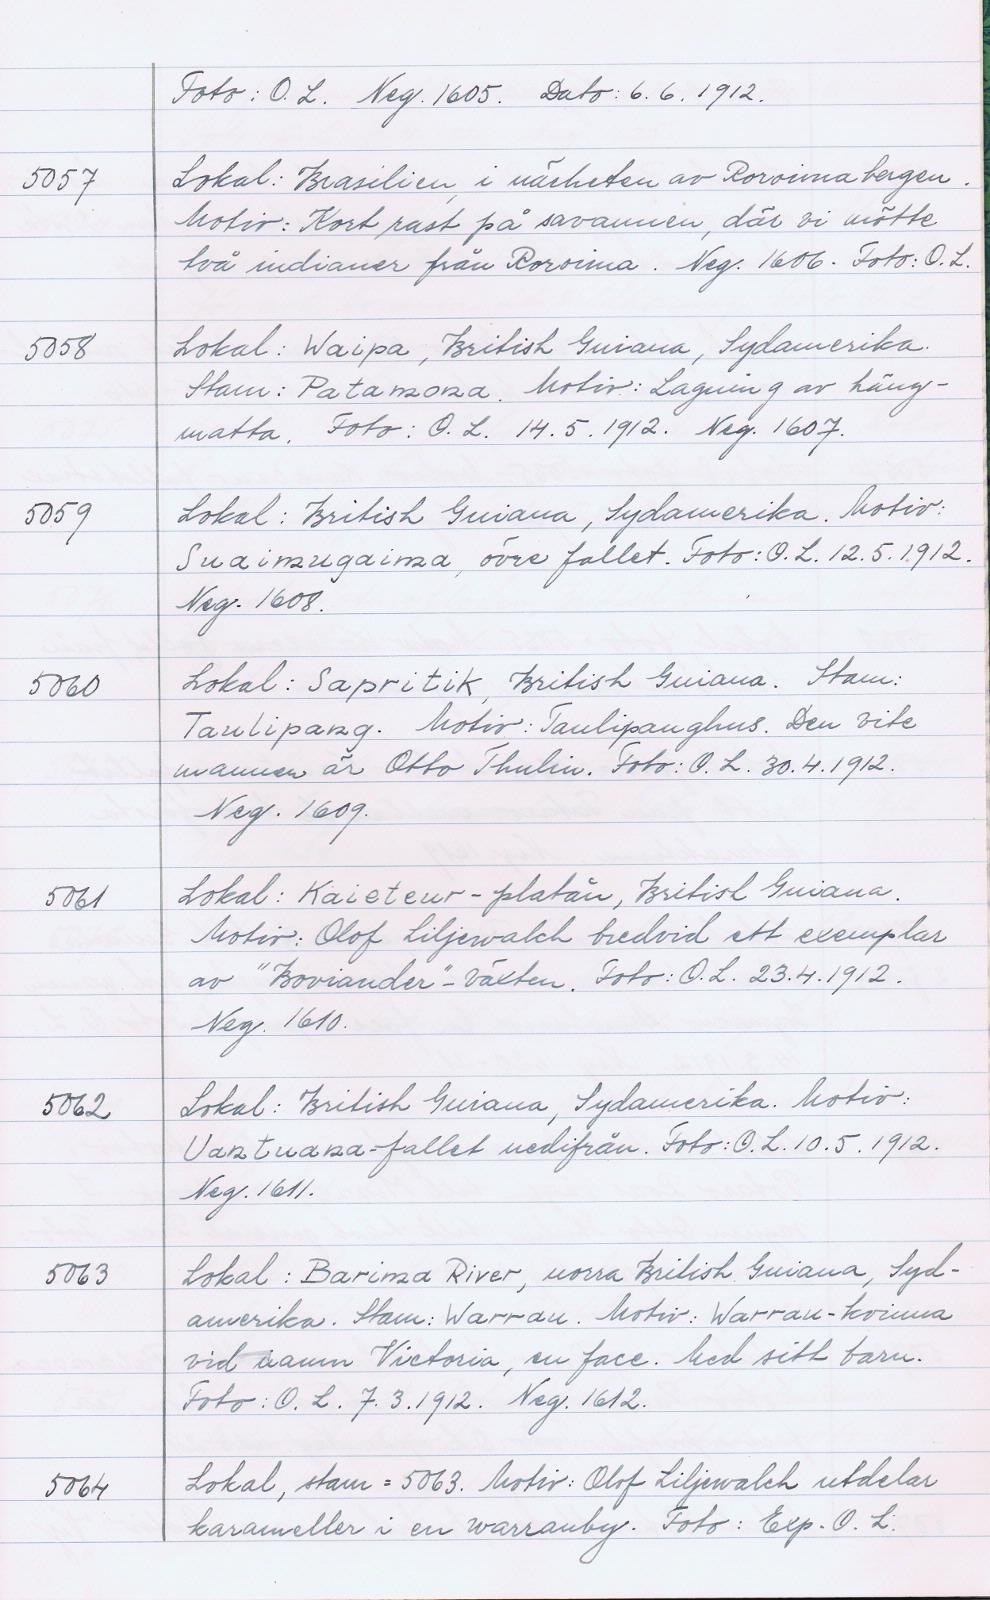 Foto: O. L. Neg. 1605. Dato: 6. 6. 1912.
5057 Lokal: Brasilien, i närheten av Roroima bergen.
Motiv: Kort rast på savannen, där vi mötte
två indianer från Roroima. Neg. 1606. Foto: O. L.
5058 Lokal: Waipa, British Guiana, Sydamerika.
Stam: Patamona. Motiv: Lagning av häng-
matta. Foto: O. L. 14. 5. 1912. Neg. 1607.
5059 Lokal: British Guiana, Sydamerika. Motiv:
Suaimugaima, övre fallet. Foto: O. L. 12. 5. 1912.
Neg. 1608.
5060 Lokal: Sapritik, British Guiana. Stam:
Taulipang. Motiv: Taulipanghus. Den vite
mannen är Otto Thulin. Foto: O. L. 30. 4. 1912.
Neg. 1609.
5061 Lokal: Kaieteur-platån, British Guiana.
Motiv: Olof Liljewalch bredvid ett exemplar
av "Boviander"-växten. Foto: O. L. 23. 4. 1912.
Neg. 1610.
5062 Lokal: British Guiana, Sydamerika. Motiv:
Uantuana-fallet nedifrån. Foto: O. L. 10. 5. 1912.
Neg. 1611.
5063 Lokal: Barima River, norra British Guiana, Syd-
amerika. Stam: Warrau. Motiv: Warrau-kvinna
vid namn Victoria, en face. Med sitt barn.
Foto: O. L. 7. 3. 1912. Neg. 1612.
5064 Lokal, stam = 5063. Motiv: Olof Liljewalch utdelar
karameller i en warrauby. Foto: Exp. O. L.